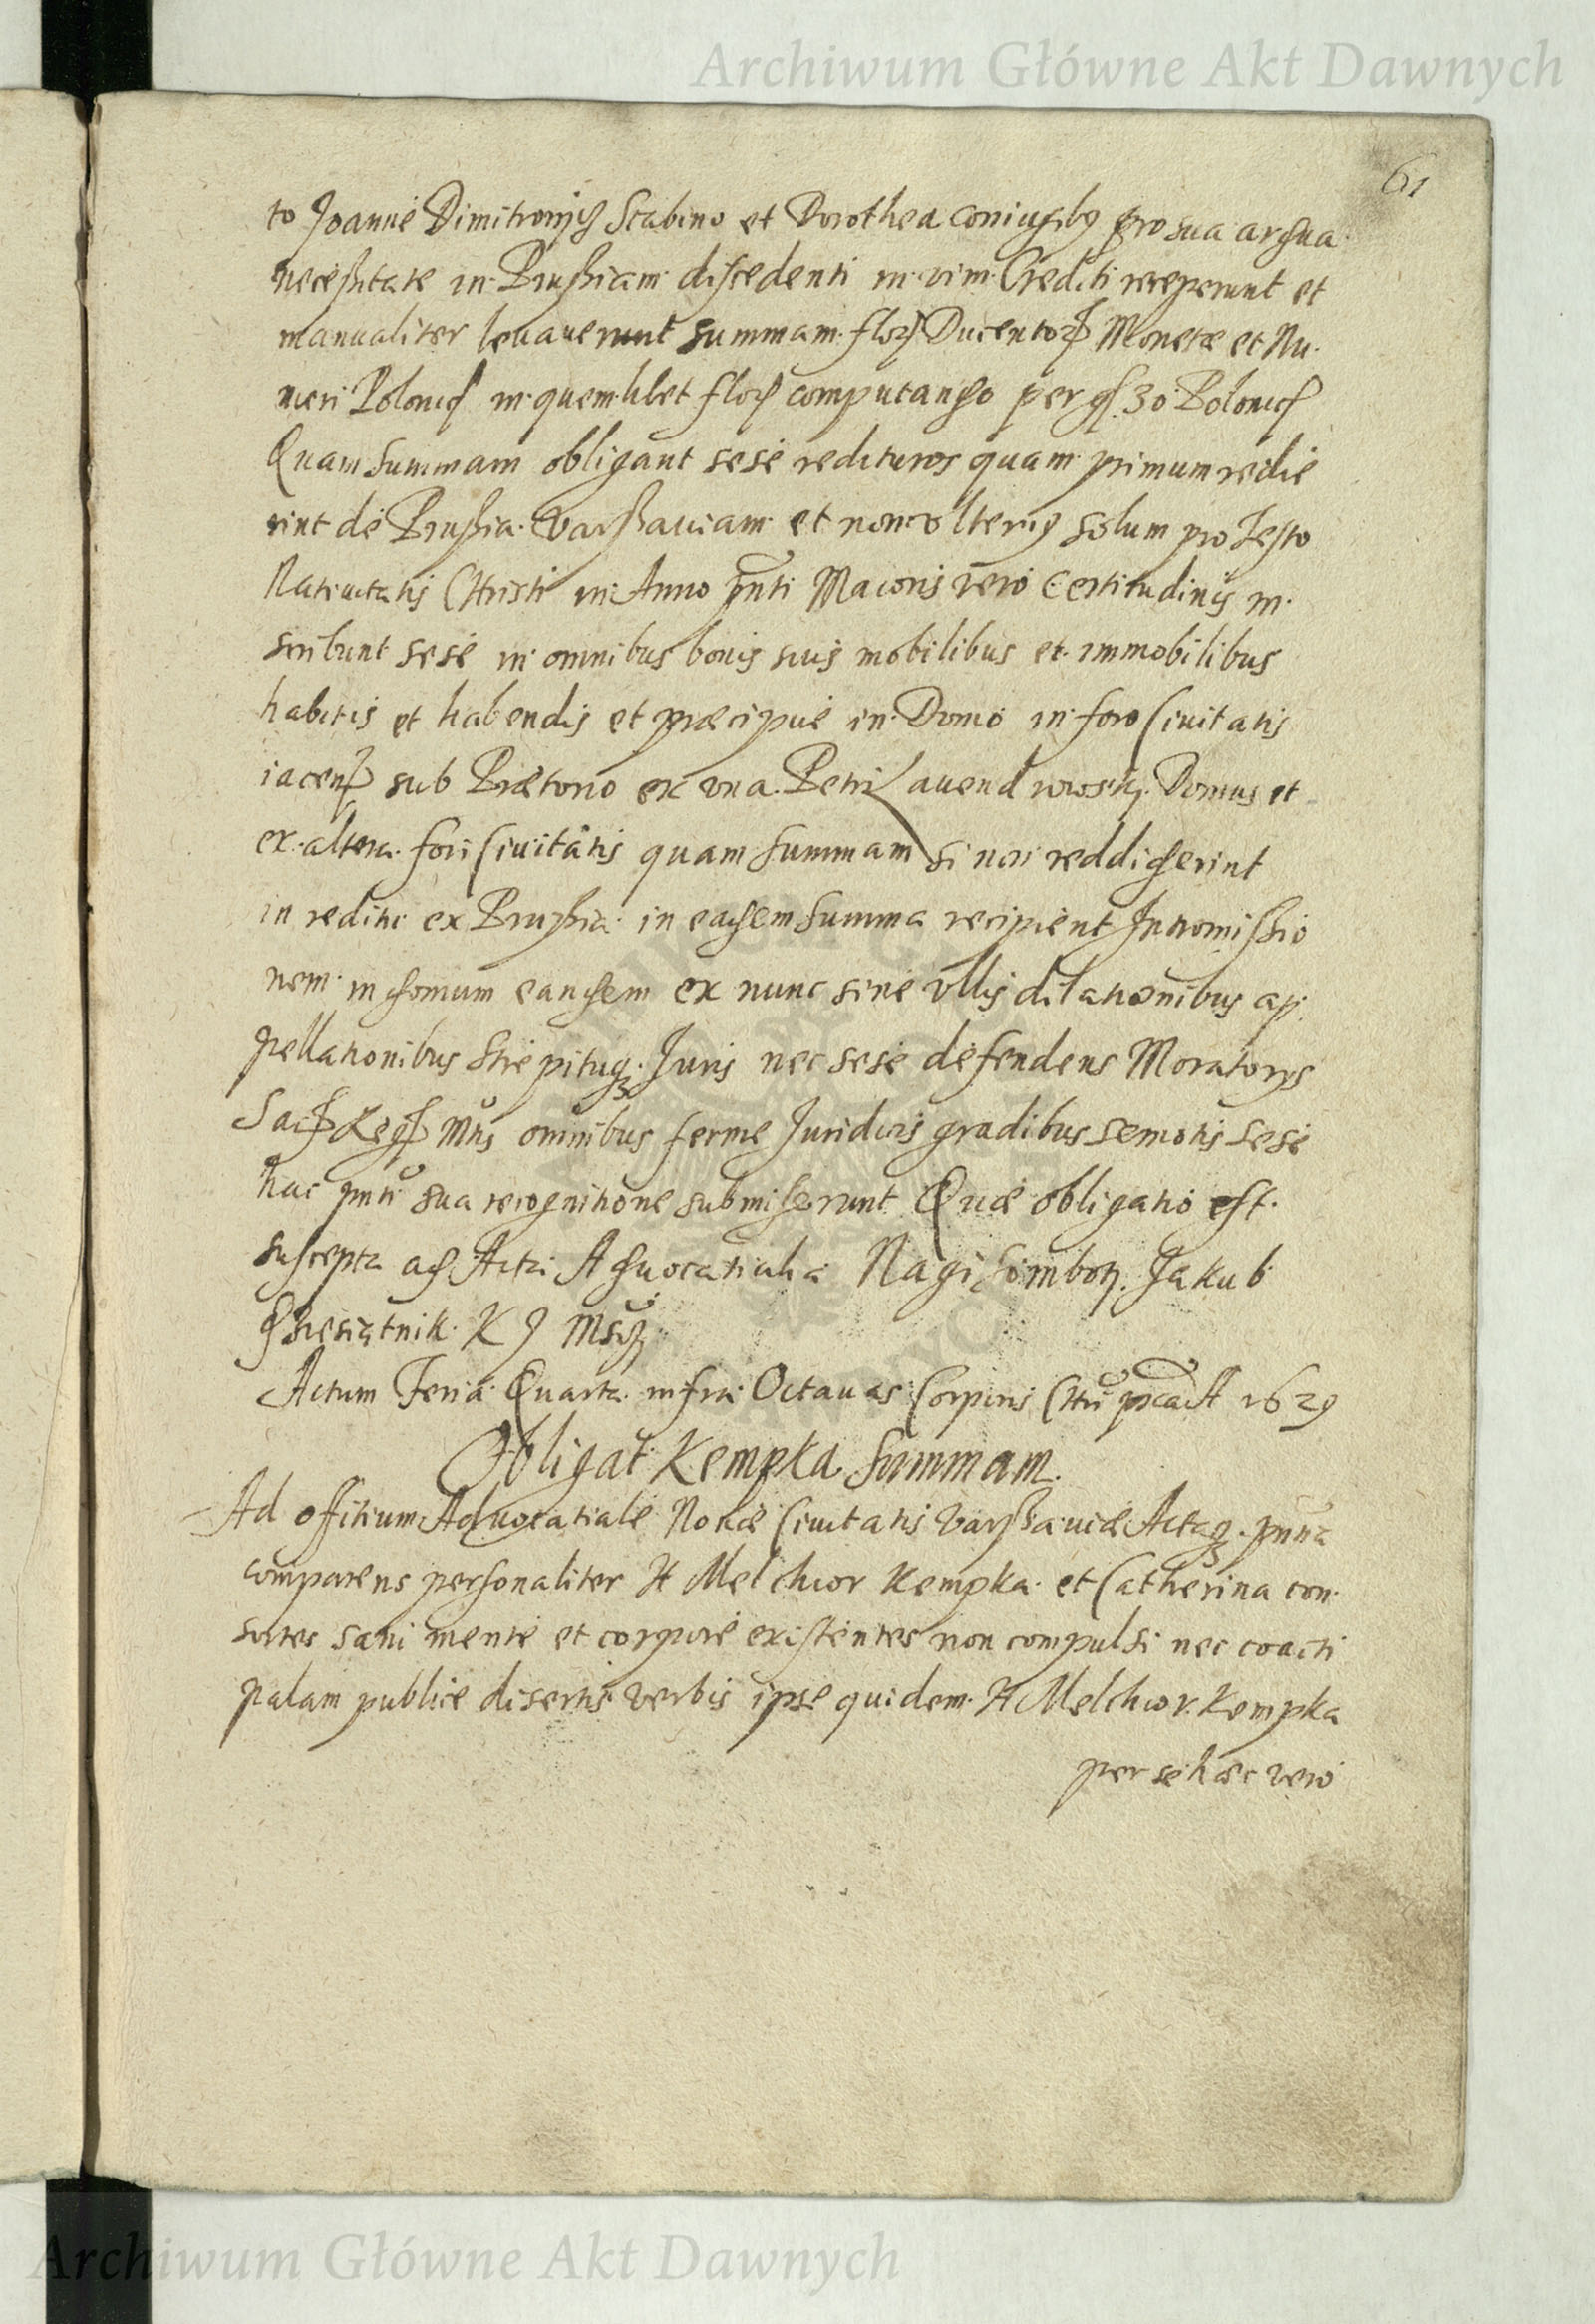 Archiwum Główne Akt Dawnych
61
to Joanne Dimitrowicz Scabino et Dorothea coniugibus pro sua ardua
necessitate in Prussiam discedenti in vim Crediti receperunt et
manualiter levaverunt summam flor Ducentor Monetæ et Nu
meri Polonic in quemlibet flor computando per gr 30 Polonic
Quam summam obligant sese redituros quam primum redie
rint de Prussia Varssaviam et non ulterius solum pro Festo
Nativitatis Christi in Anno pnti Maioris vero Certitudinis in
scribunt sese in omnibus bonis suis mobilibus et immobilibus
habitis et habendis et præcipue in Domo in foro Civitatis
iacen sub Prætorio ex una Petri Domus et
ex altera fori Civitatis quam summam si non reddiderint
in reditu ex Prussia in eadem summa recipient Intromissio
nem in domum eandem ex nunc sine ullis dilationibus ap
pellationibus strepituq Juris nec sese defendens Moratorys
Sacr Reg Mtis omnibus ferme Juridicis gradibus semotis sese
hac pnti sua recognitione submiserunt Quæ obligatio est
suscepta ad Acta Advocatialia Jakub
Dziesiątnik K J
Actum Feria Quarta infra Octavas Corporis Chri 1629
Obligat Kempka Summam
Ad officium Advocatiale Novæ Civitatis Varssaviæ Actaq pntia
comparens personaliter H Melchior Kempka et Catherina con
sortes sani mente et corpore existentes non compulsi nec coacti
palam publice disertis verbis ipse quidem H Melchior Kempka
per se hæc vero
Archiwum Główne Akt Dawnych